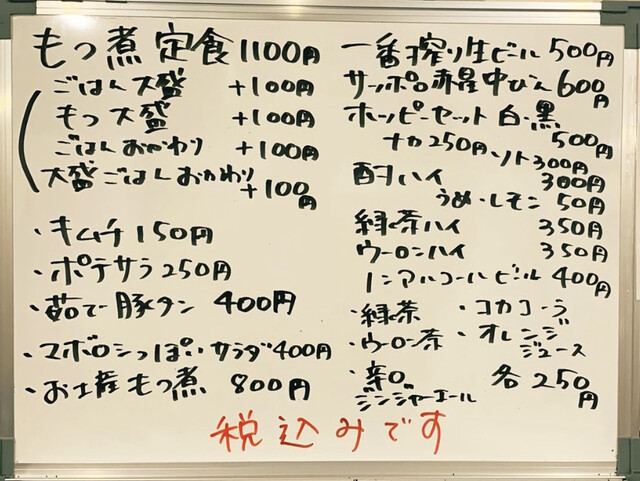 もつ煮定食1100円
ごはん大盛 +100円
もつ大盛 +100円
ごはんおかわり +100円
大盛ごはんおかわり +100円
・キムチ150円
・ポテサラ250円
・茹で豚タン 400円
・マボロシっぽいサラダ400円
・お土産もつ煮 800円
一番搾り生ビール500円
サッポロ赤星中びん600円
ホッピーセット白・黒
500円
ナカ250円ソト300円
酎ハイ 300円
うめ・レモン50円
緑茶ハイ 350円
ウーロンハイ 350円
ノンアルコールビール400円
・緑茶 ・コカコーラ
・ウーロン茶 ・オレンジ
ジュース
・辛口
ジンジャーエール
各250円
税込みです